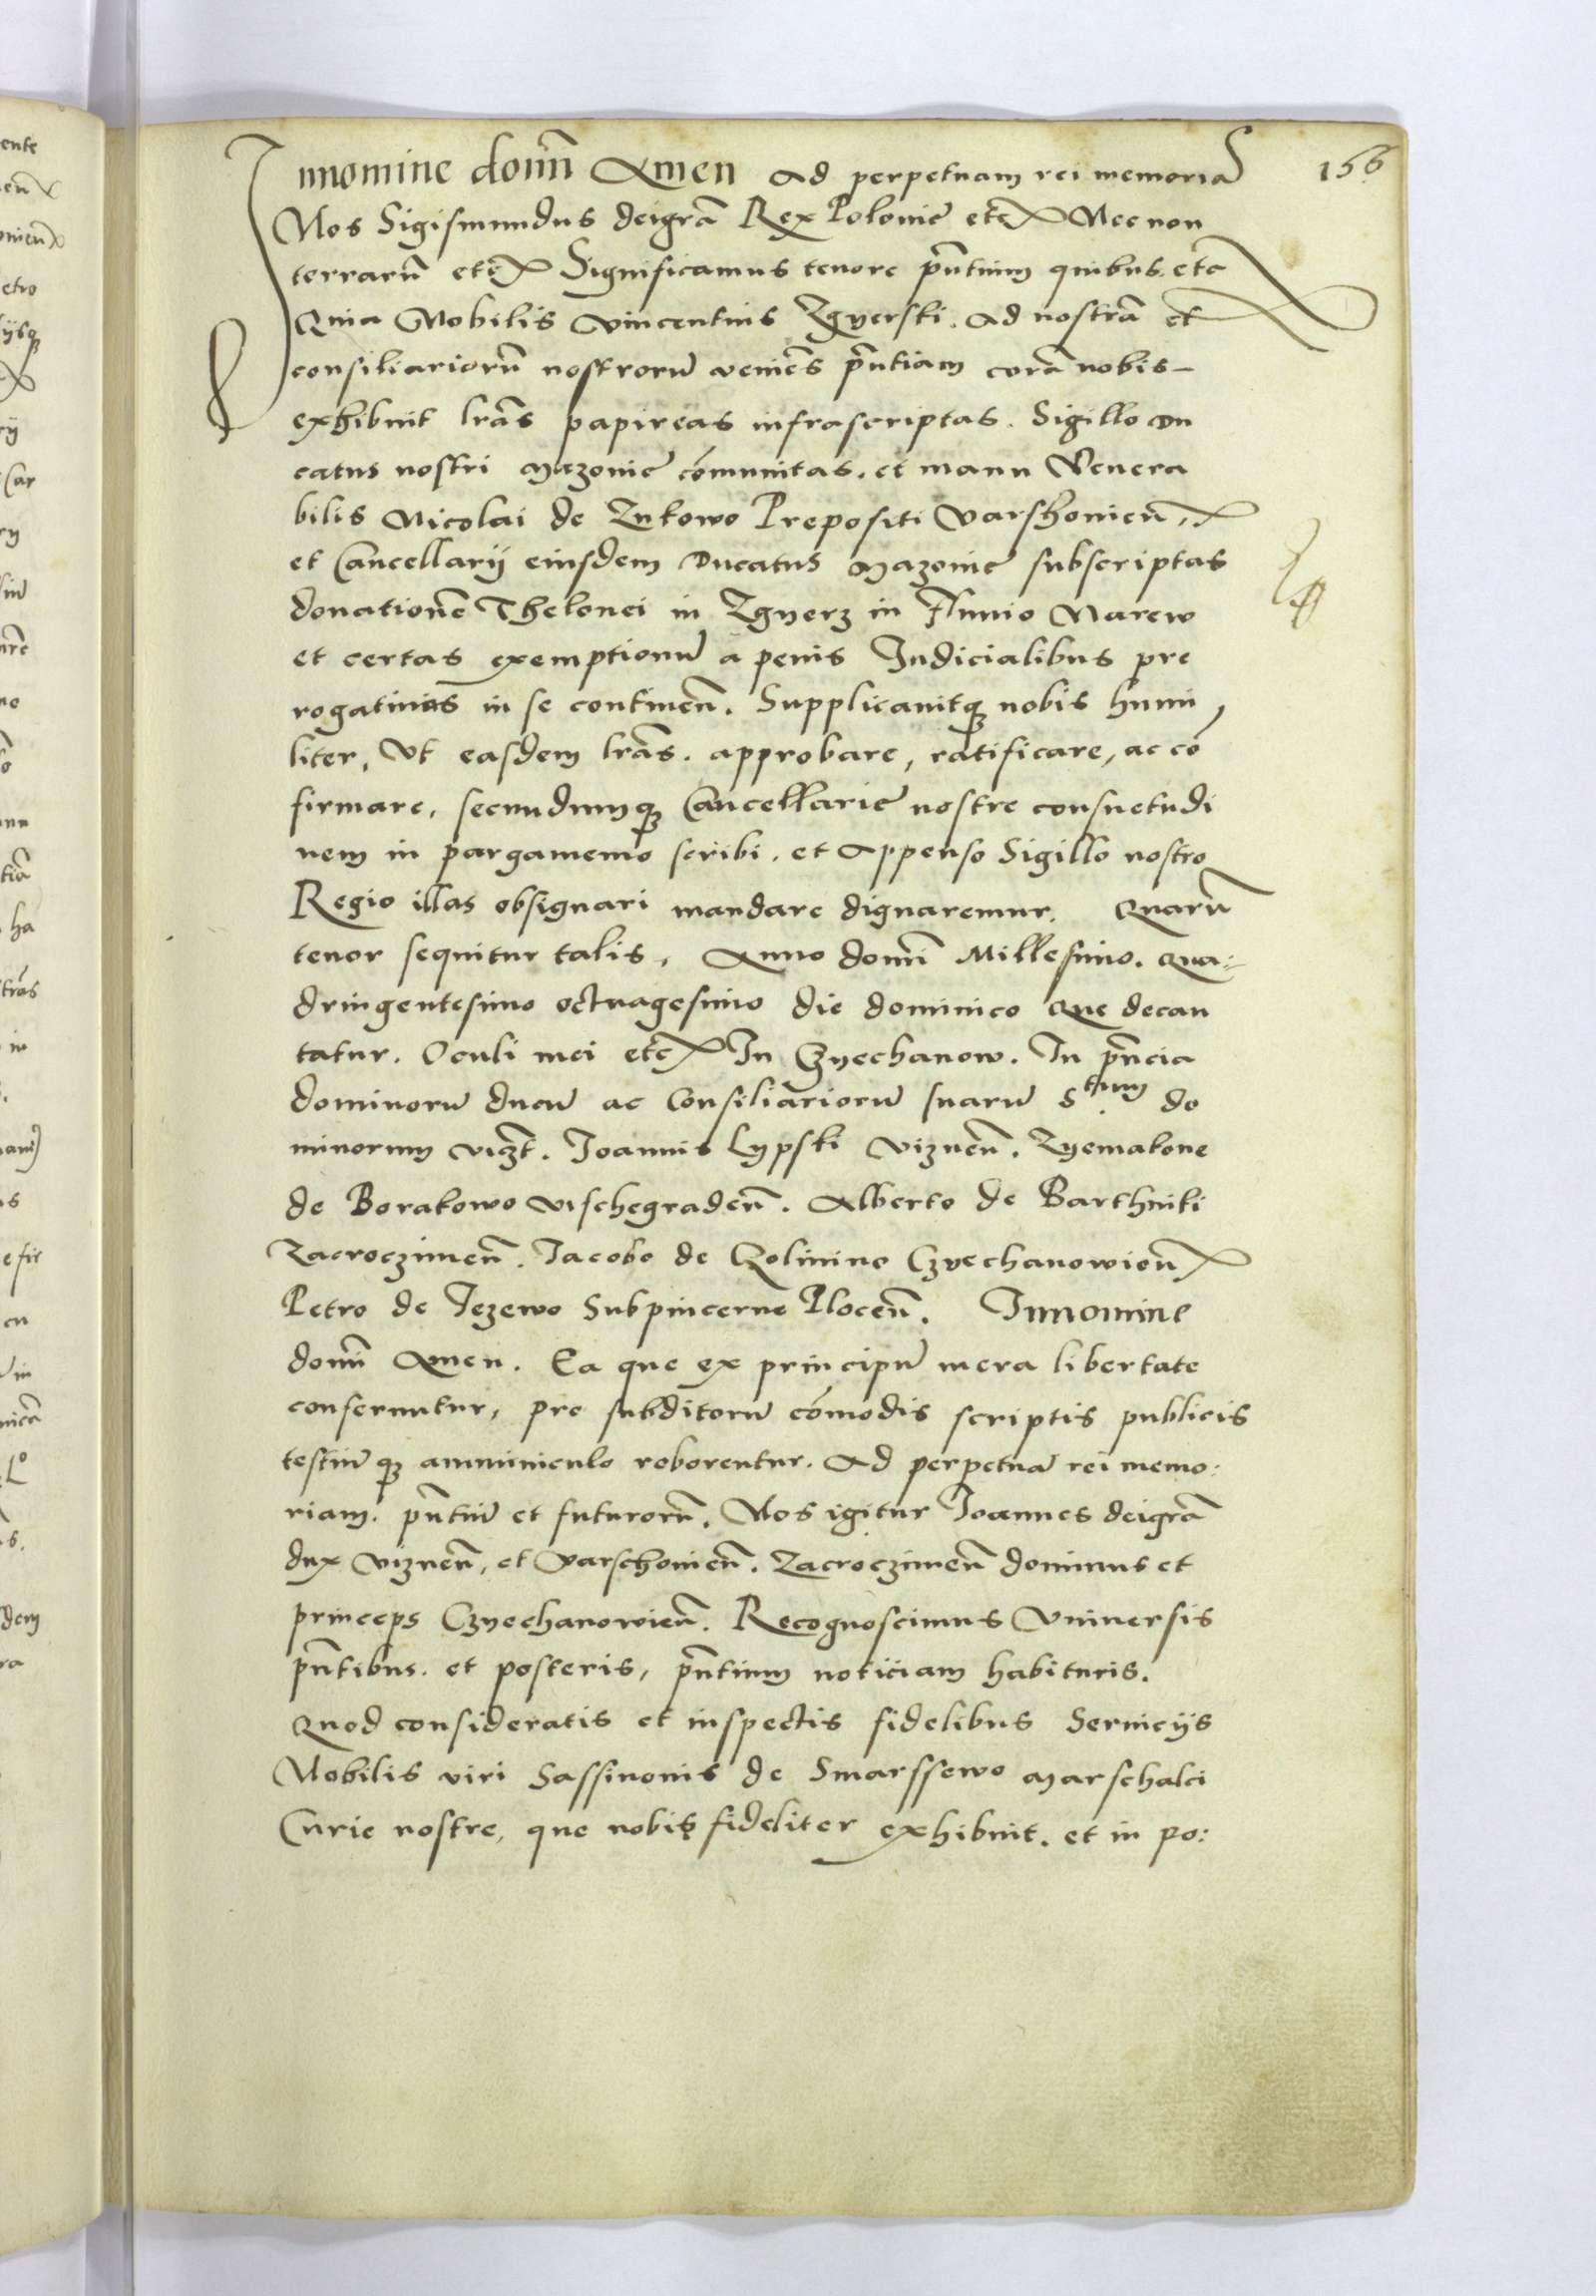 156
Innomine domĩ Amen Ad perpetuam rei memoriã
Nos Sigismundus deigrã Rex Polonie etc̃ Necnon
terrarũ etc̃ Significamus tenore p̃ntium quibus. etc
Quia Nobilis Vincentius Zgyerski. Ad nostrã et
consiliariorũ nostrorũ veniẽs p̃ntiam corã nobis-
exhibuit lrãs papireas infrascriptas. Sigillo Du
catus nostri Mazovie cõmunitas. et manu Venera
bilis Nicolai de Zukowo Prepositi Varschovieñ.
et Cancellarij eiusdem Ducatus Mazovie subscriptas
donationẽ Thelonei in Zgyerz in Fluvio Narew
et certas exemptionũ a penis Iudicialibus pre
rogativas in se contineñ. Supplicavitqȝ nobis humi,
liter, Vt easdem lrãs. approbare, ratificare, ac cõ
firmare, secundumqȝ Cancellarie nostre consuetudi
nem in pargameno scribi. et Appenso Sigillo nostro
Regio illas obsignari mandare dignaremur. Quarũ
tenor sequitur talis, Anno domĩ Millesimo. Qua:
dringentesimo octuagesimo die dominico Que decan
tatur. Oculi mei etc̃ In Czyechanow. In p̃ncia
dominorũ ducũ ac Consiliariorũ suarũ S.tum do
minorum viȝt. Joannis Lypski Vizneñ. Zyemakone
de Borakowo Vischegradeñ. Alberto de Barthniki
Zacroczimeñ. Jacobo de Golinino Czyechanowieñ
Petro de Jezewo Subpincerne Ploceñ. Innomine
domĩ Amen. Ea que ex principũ mera libertate
conferuntur, pro subditorũ cõmodis scriptis publicis
testiũ qȝ amminiculo roborentur. Ad perpetuã rei memo:
riam. p̃ntiũ et futurorũ. Nos igitur Joannes deigrã
dux Vizneñ, et Varschovieñ. Zacroczimeñ dominus et
princeps Czyechanowieñ. Recognoscimus Vniversis
p̃ntibus. et posteris, p̃ntium noticiam habituris.
Quod consideratis et inspectis fidelibus Servicijs
Nobilis viri Sassinonis de Smarssewo Marschalci
Curie nostre, que nobis fideliter exhibuit. et in po: